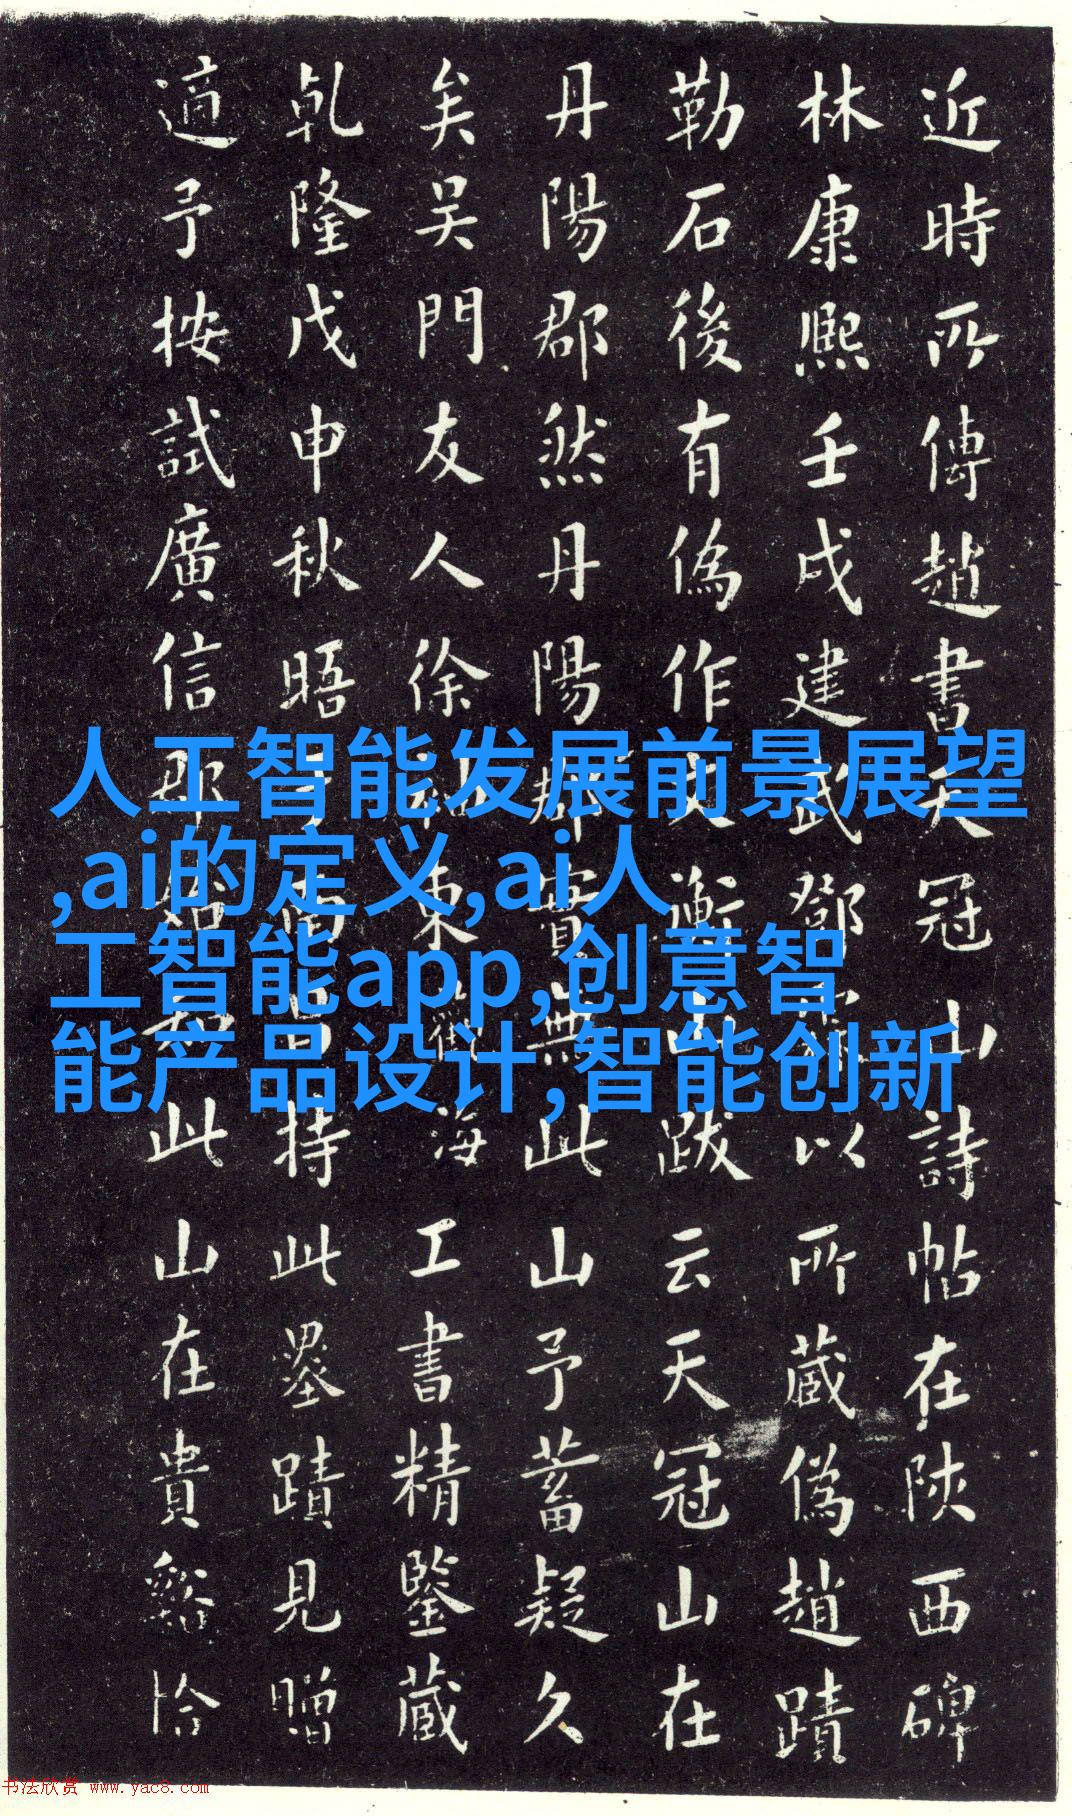 近時所傳趙書天冠山詩帖在陝西碑
林康熙壬戌建武鄧以所藏偽趙蹟
勒石後有偽作文衡山跋云天冠山在
丹陽郡然丹陽郡實無此山予蓄疑久
矣吴門友人徐東海工書精鑒藏
乾隆戊申秋晤于南昌持此墨蹟見贈
適予按試廣信郡知此山在貴谿恰
人工智能发展前景展望
,ai的定义,ai人
工智能app,创意智
能产品设计,智能创新
书法欣赏 www.yac8.com